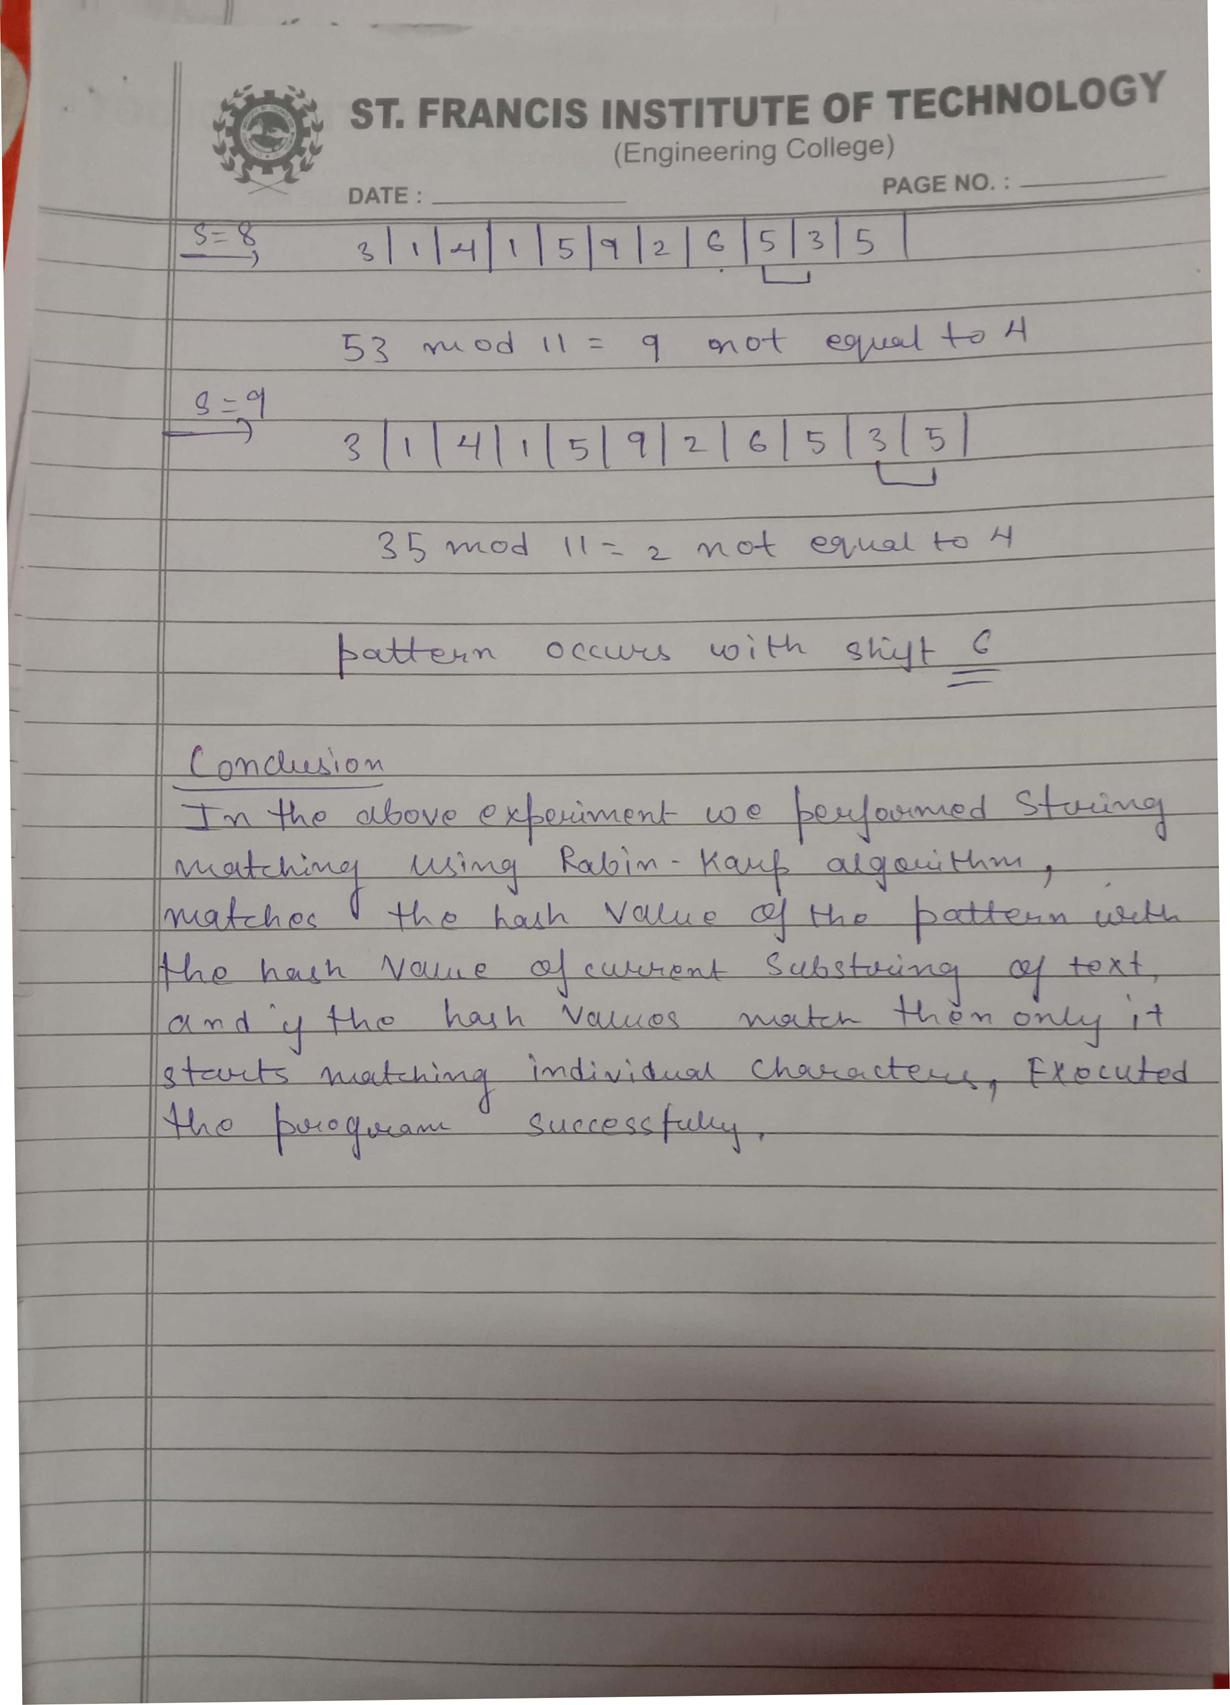 ST. FRANCIS INSTITUTE OF TECHNOLOGY
(Engineering College)
DATE :
PAGE NO. :
S=8
3|1|4|1|5|9|2|6|5|3|5|
53 mod 11 = 9 not equal to 4
S=9
3|1|4|1|5|9|2|6|5|3|5|
35 mod 11 = 2 not equal to 4
pattern occurs with shift 6
Conclusion
In the above experiment we performed String
matching using Rabin-Karp algorithm,
matches the hash value of the pattern with
the hash value of current substring of text,
and if the hash values match then only it
starts matching individual characters, Executed
the program successfully.